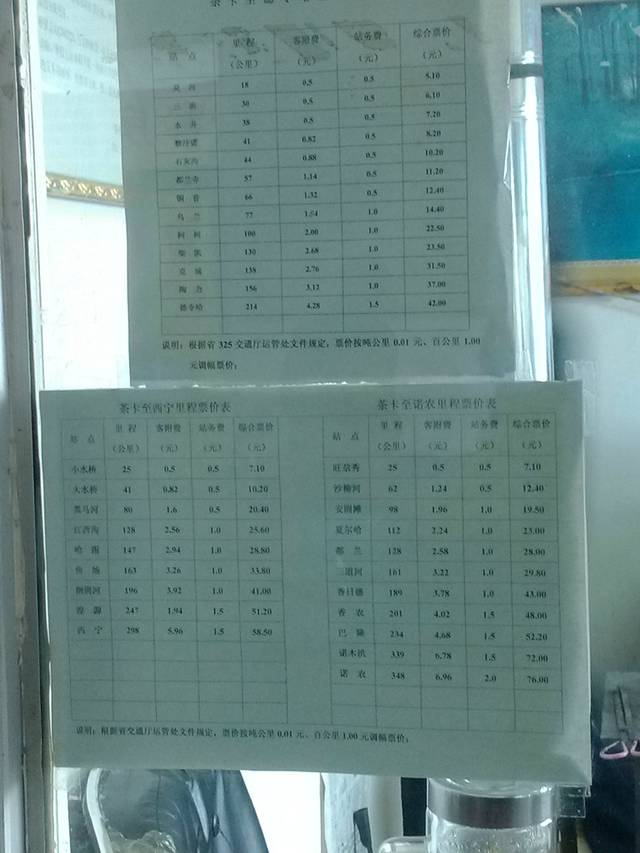 茶卡至德令哈
站 点 里 程 (公里) 客附费 (元) 站务费 (元) 综合票价 (元)
莫 河 18 0.5 0.5 5.10
三 30 0.5 0.5 6.10
水 井 38 0.5 0.5 7.20
41 0.82 0.5 8.20
石灰沟 44 0.88 0.5 10.20
都兰寺 57 1.14 0.5 11.20
铜 普 66 1.32 0.5 12.40
乌 兰 77 1.54 1.0 14.40
柯 柯 100 2.00 1.0 22.50
柴 凯 130 2.68 1.0 23.50
138 2.76 1.0 31.50
陶 力 156 3.12 1.0 37.00
德令哈 214 4.28 1.5 42.00
说明：根据省 325 交通厅运管处文件规定，票价按吨公里 0.01 元、百公里 1.00
元调幅票价；
茶卡至西宁里程票价表
站 点 里 程 (公里) 客附费 (元) 站务费 (元) 综合票价 (元)
小水桥 25 0.5 0.5 7.10
大水桥 41 0.82 0.5 10.20
黑马河 80 1.6 0.5 20.40
江西沟 128 2.56 1.0 25.60
哈 图 147 2.94 1.0 28.80
鱼 场 163 3.26 1.0 33.80
倒淌河 196 3.92 1.0 41.00
湟 源 247 1.94 1.5 51.20
西 宁 298 5.96 1.5 58.50
茶卡至诺农里程票价表
站 点 里 程 (公里) 客附费 (元) 站务费 (元) 综合票价 (元)
旺尕秀 25 0.5 0.5 7.10
沙柳河 62 1.24 0.5 12.40
安固滩 98 1.96 1.0 19.50
夏尔哈 112 2.24 1.0 23.00
都 兰 128 2.58 1.0 28.00
三道河 161 3.22 1.0 29.80
香日德 189 3.78 1.0 43.00
香 农 201 4.02 1.5 48.00
巴 隆 234 4.68 1.5 52.20
诺木洪 339 6.78 1.5 72.00
诺 农 348 6.96 2.0 76.00
说明：根据省交通厅运管处文件规定，票价按吨公里 0.01 元、百公里 1.00 元调幅票价；